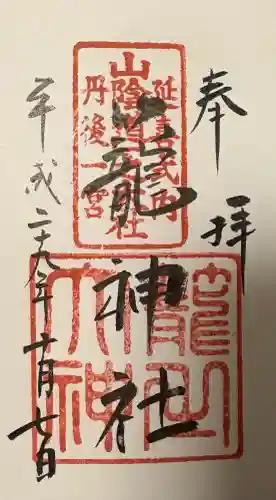 奉拝
延喜式内
山陰道
社
丹後一宮
籠神社
籠之
大神
平成二十九年十月七日